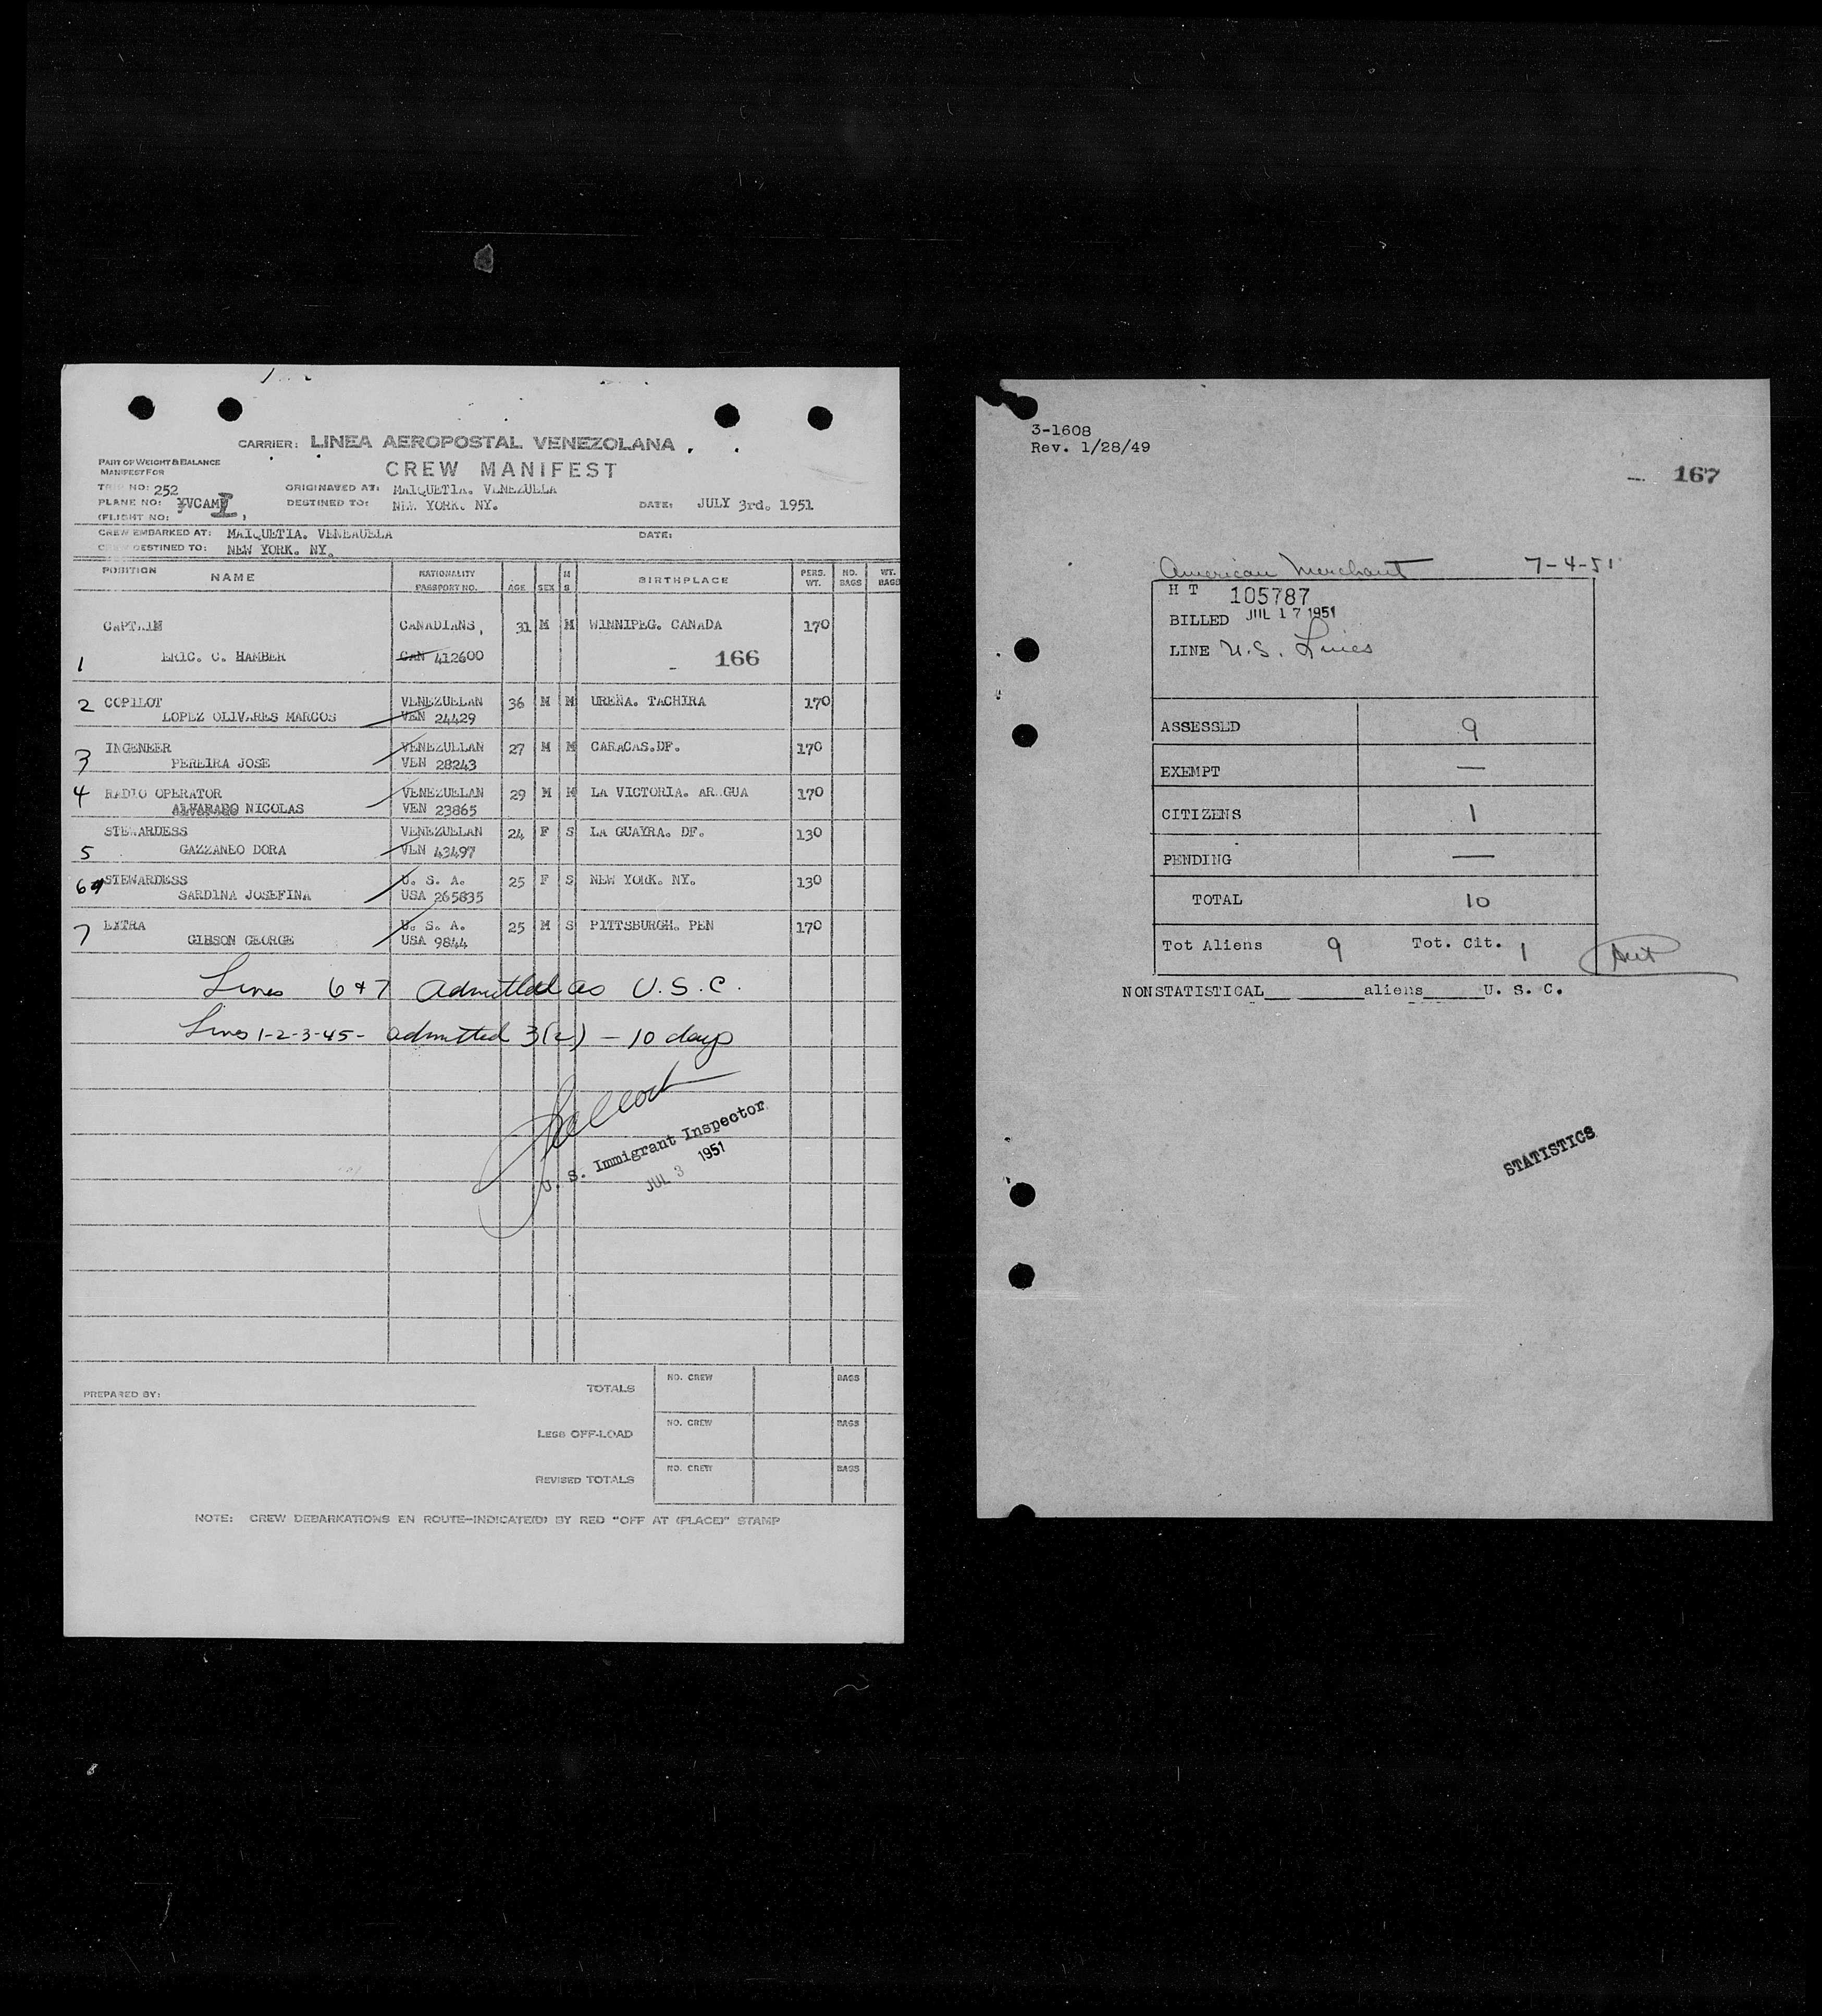 CARRIER: LINEA AEROPOSTAL VENEZOLANA
PART OF WEIGHT & BALANCE
MANIFEST FOR
CREW MANIFEST
TRIP NO: 252
ORIGINATED AT: MAIQUETIA. VENEZUELA
PLANE NO: YVCAM
DESTINED TO: NEW YORK. NY.
DATE: JULY 3rd. 1951
(FLIGHT NO: )
CREW EMBARKED AT: MAIQUETIA. VENEAUELA
DATE:
CREW DESTINED TO: NEW YORK. NY.
POSITION NAME NATIONALITY PASSPORT NO. AGE SEX M S BIRTHPLACE PERS. WT. NO. BAGS WT. BAGS
CAPTAIM CANADIANS, 31 M M WINNIPEG. CANADA 170
1 ERIC. C. HAMBER CAN 412600 166
2 COPILOT VENEZUELAN 36 M M UREÑA. TACHIRA 170
LOPEZ OLIVARES MARCOS VEN 24429
INGENEER VENEZUELAN 27 M M CARACAS.DF. 170
3 PEREIRA JOSE VEN 28243
4 RADIO OPERATOR VENEZUELAN 29 M M LA VICTORIA. ARAGUA 170
ALVARADO NICOLAS VEN 23865
STEWARDESS VENEZUELAN 24 F S LA GUAYRA. DF. 130
5 GAZZANEO DORA VEN 43497
6 STEWARDESS U. S. A. 25 F S NEW YORK. NY. 130
SARDINA JOSEFINA USA 265835
EXTRA U. S. A. 25 M S PITTSBURGH. PEN 170
7 GIBSON GEORGE USA 9844
Lines 6 & 7 admitted as U.S.C.
Lines 1-2-3-45- admitted 3(2) - 10 days
U. S. Immigrant Inspector
JUL 3 1951
PREPARED BY:
TOTALS NO. CREW BAGS
LESS OFF-LOAD NO. CREW BAGS
REVISED TOTALS NO. CREW BAGS
NOTE: CREW DEBARKATIONS EN ROUTE-INDICATE(D) BY RED "OFF AT (PLACE)" STAMP
3-1608
Rev. 1/28/49
167
American Merchant 7-4-51
H T 105787
BILLED JUL 17 1951
LINE U.S. Lines
ASSESSED 9
EXEMPT —
CITIZENS 1
PENDING —
TOTAL 10
Tot Aliens 9 Tot. Cit. 1
NONSTATISTICAL__________aliens_____U. S. C.
STATISTICS